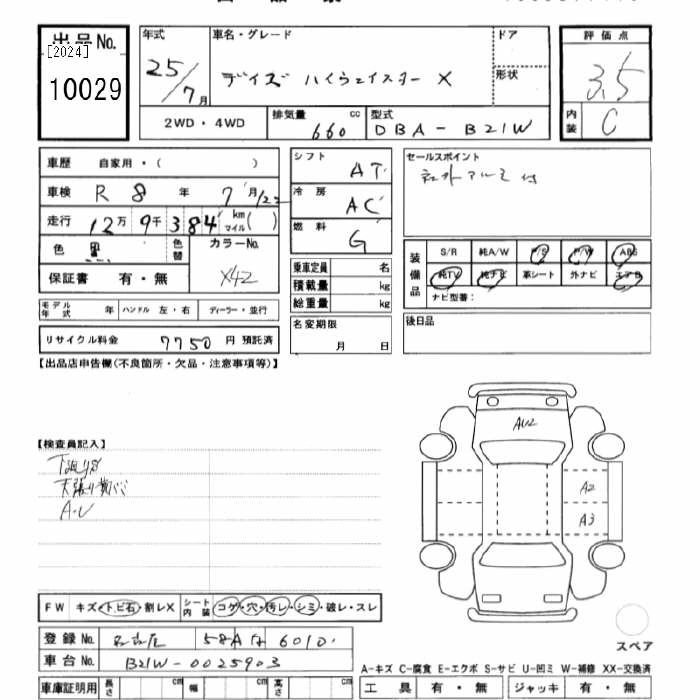 出品No.
[2024]
10029
年式
25/7月
車名・グレード
デイズ ハイウェイスター X
ドア
形状
評価点
3.5
内装
C
2WD・4WD
排気量 660 cc
型式 DBA-B21W
車歴 自家用・( )
車検 R 8 年 7月/22
走行 12万 9千 384 km マイル( )
色 黒
色替
カラーNo.
X42
保証書 有・無
モデル年式 年 ハンドル 左・右 ディーラー・並行
リサイクル料金 7750 円 預託済
シフト AT
冷房 AC
燃料 G
乗車定員 名
積載量 kg
総重量 kg
名変期限
月 日
セールスポイント
社外アルミ付
装備品
S/R 純A/W P/S P/W ABS
純TV 純ナビ 革シート 外ナビ エアB
ナビ型番:
後日品
【出品店申告欄(不良箇所・欠品・注意事項等)】
【検査員記入】
A・U
AU2
A2
A3
FW キズ・トビ石・割レX
シート内装 コゲ・穴・汚レ・シミ・破レ・スレ
登録No. 名古屋 58A 6010
車台No. B21W-0025903
スペア
A-キズ C-腐食 E-エクボ S-サビ U-凹ミ W-補修 XX-交換済
車庫証明用 長さ cm 幅 cm 高さ cm
工具 有・無 ジャッキ 有・無